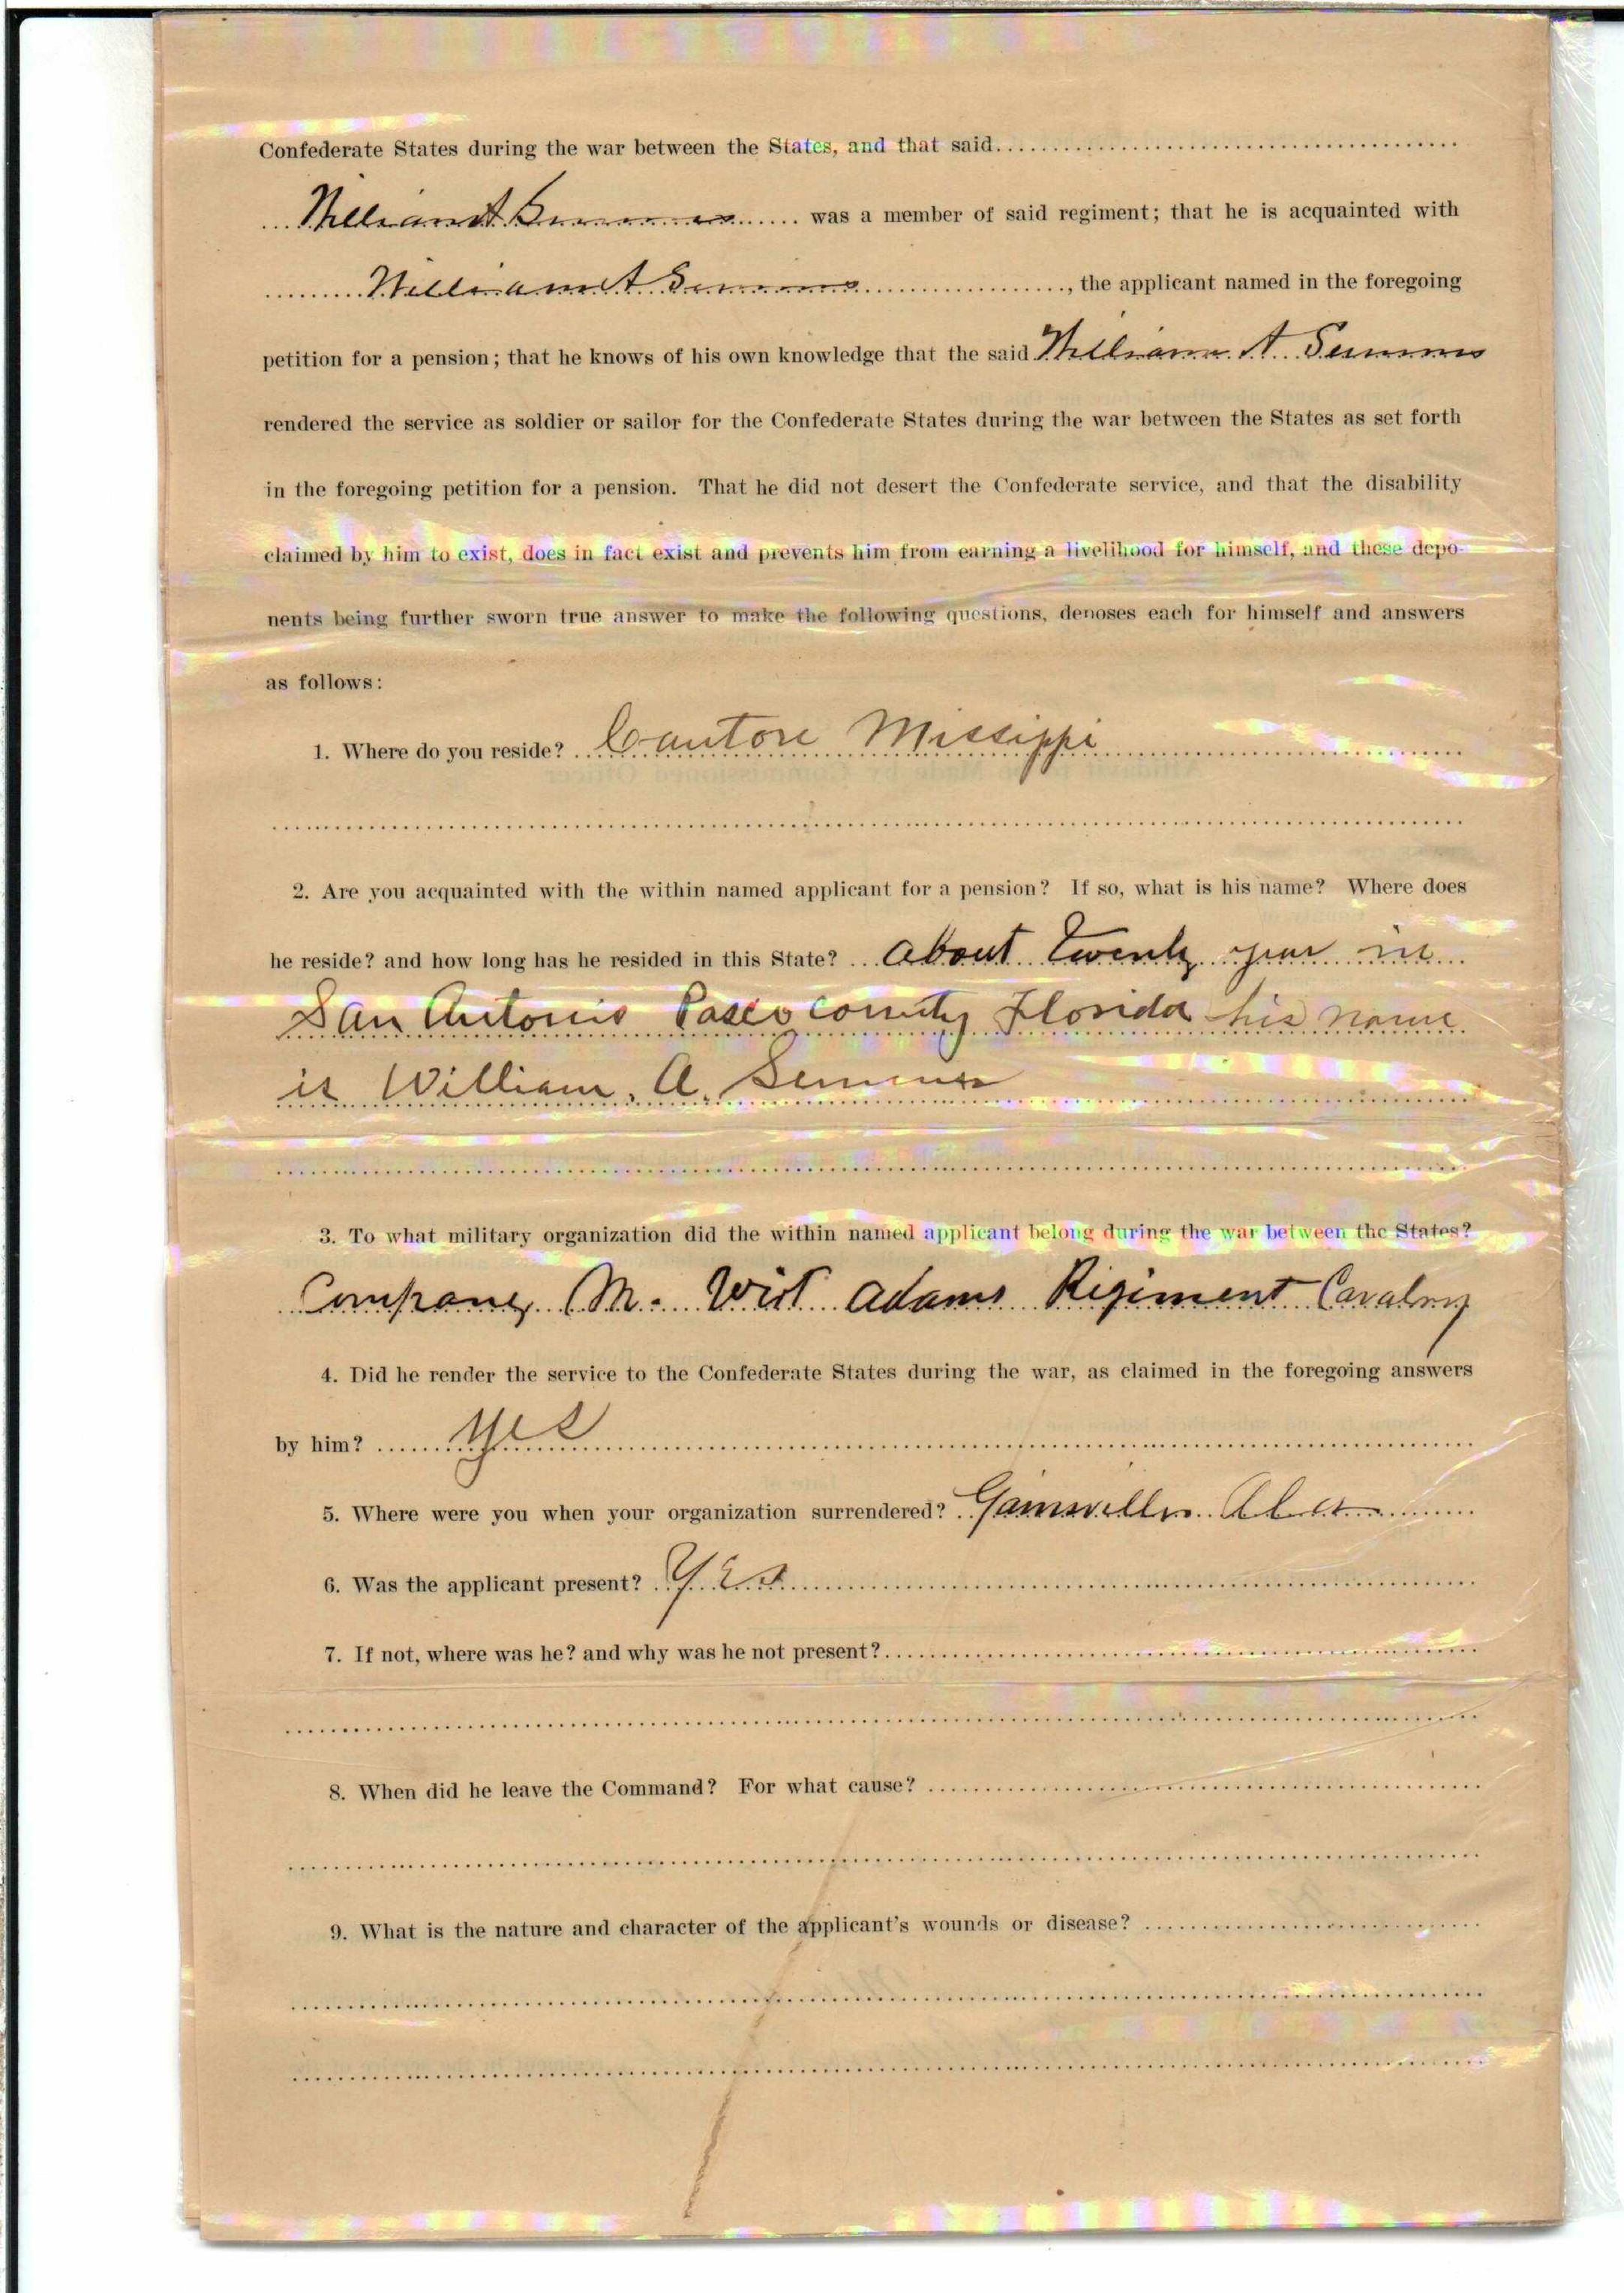 Confederate States during the war between the States, and that said
William A Semmes was a member of said regiment; that he is acquainted with
William A Semmes, the applicant named in the foregoing
petition for a pension; that he knows of his own knowledge that the said William A. Semmes
rendered the service as soldier or sailor for the Confederate States during the war between the States as set forth
in the foregoing petition for a pension. That he did not desert the Confederate service, and that the disability
claimed by him to exist, does in fact exist and prevents him from earning a livelihood for himself, and these depo-
nents being further sworn true answer to make the following questions, deposes each for himself and answers
as follows:
1. Where do you reside? Canton Missippi
2. Are you acquainted with the within named applicant for a pension? If so, what is his name? Where does
he reside? and how long has he resided in this State? About twenty year in
San Antonio Pasco County Florida his name
is William. A. Semmes
3. To what military organization did the within named applicant belong during the war between the States?
Company M. Wirt Adams Rigiment Cavalry
4. Did he render the service to the Confederate States during the war, as claimed in the foregoing answers
by him? Yes
5. Where were you when your organization surrendered? Gainsville Ala
6. Was the applicant present? Yes
7. If not, where was he? and why was he not present?
8. When did he leave the Command? For what cause?
9. What is the nature and character of the applicant's wounds or disease?